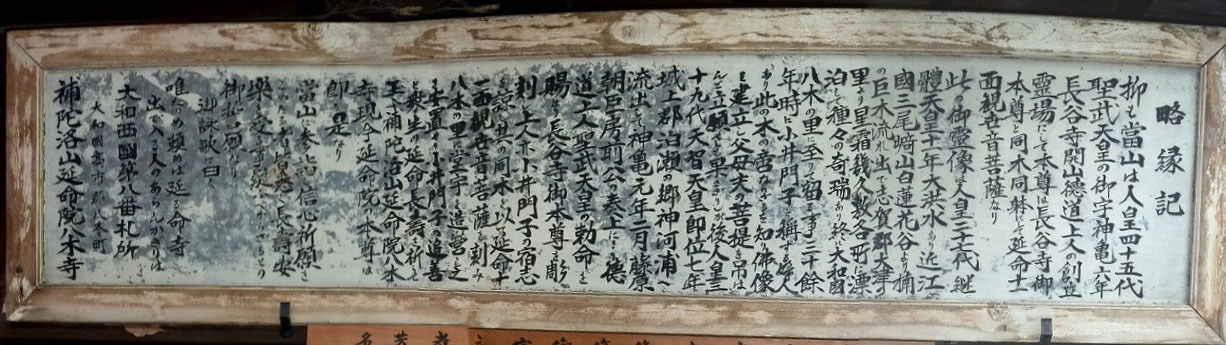 略縁記
抑も當山は人皇四十五代
聖武天皇の御宇神亀六年
長谷寺開山德道上人の創立
靈場にて本尊は長谷寺御
本尊と同木同躰にて延命十一
面観世音菩薩なり
此の御靈像は人皇二十七代継
體天皇十一年大洪水あり近江
國三尾﨑山白蓮花谷より楠
の巨木流れ出て志賀郡大津の
里より星霜幾久敷各町に漂
泊して種々の奇瑞あり終に大和國
八木の里に至て留る事三十余
年時に小井門子と稱する婦人
あり此の木の善なるを知り佛像
を建立し父母夫の菩提を弔は
んと立願を果さざるが後人皇三
十九代天智天皇即位七年
城上郡泊瀬の郷神河浦へ
流出して神亀元年二月藤原
朝臣房前公の奏上に德
道上人聖武天皇の勅命を
賜はり長谷寺御本尊を彫
刻上人亦小井門子の宿志
を諒し其の同木を以て延命十
一面観世音菩薩を刻み
八木の里に堂宇を造営し之
を安置して小井門子の追善
と衆生の延命長壽を祈る
玉ふ補陀洛山延命院八木
寺現今延命院の本尊は
即ち是なり
當山に参詣し信心祈願する
ものは者皆悉く長壽安
樂を受る事疑べからざるの
御私願なり
御詠歌曰く
唯たのめ頼めは延る命寺
出で入る人のあらんかぎりは
大和西國第八番札所
大和國高市郡八木町
補陀洛山延命院八木寺